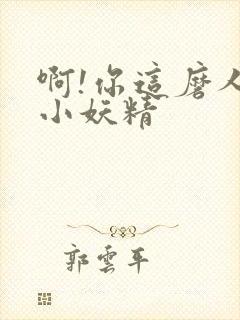 啊!你這磨人
小妖精
郭雲平